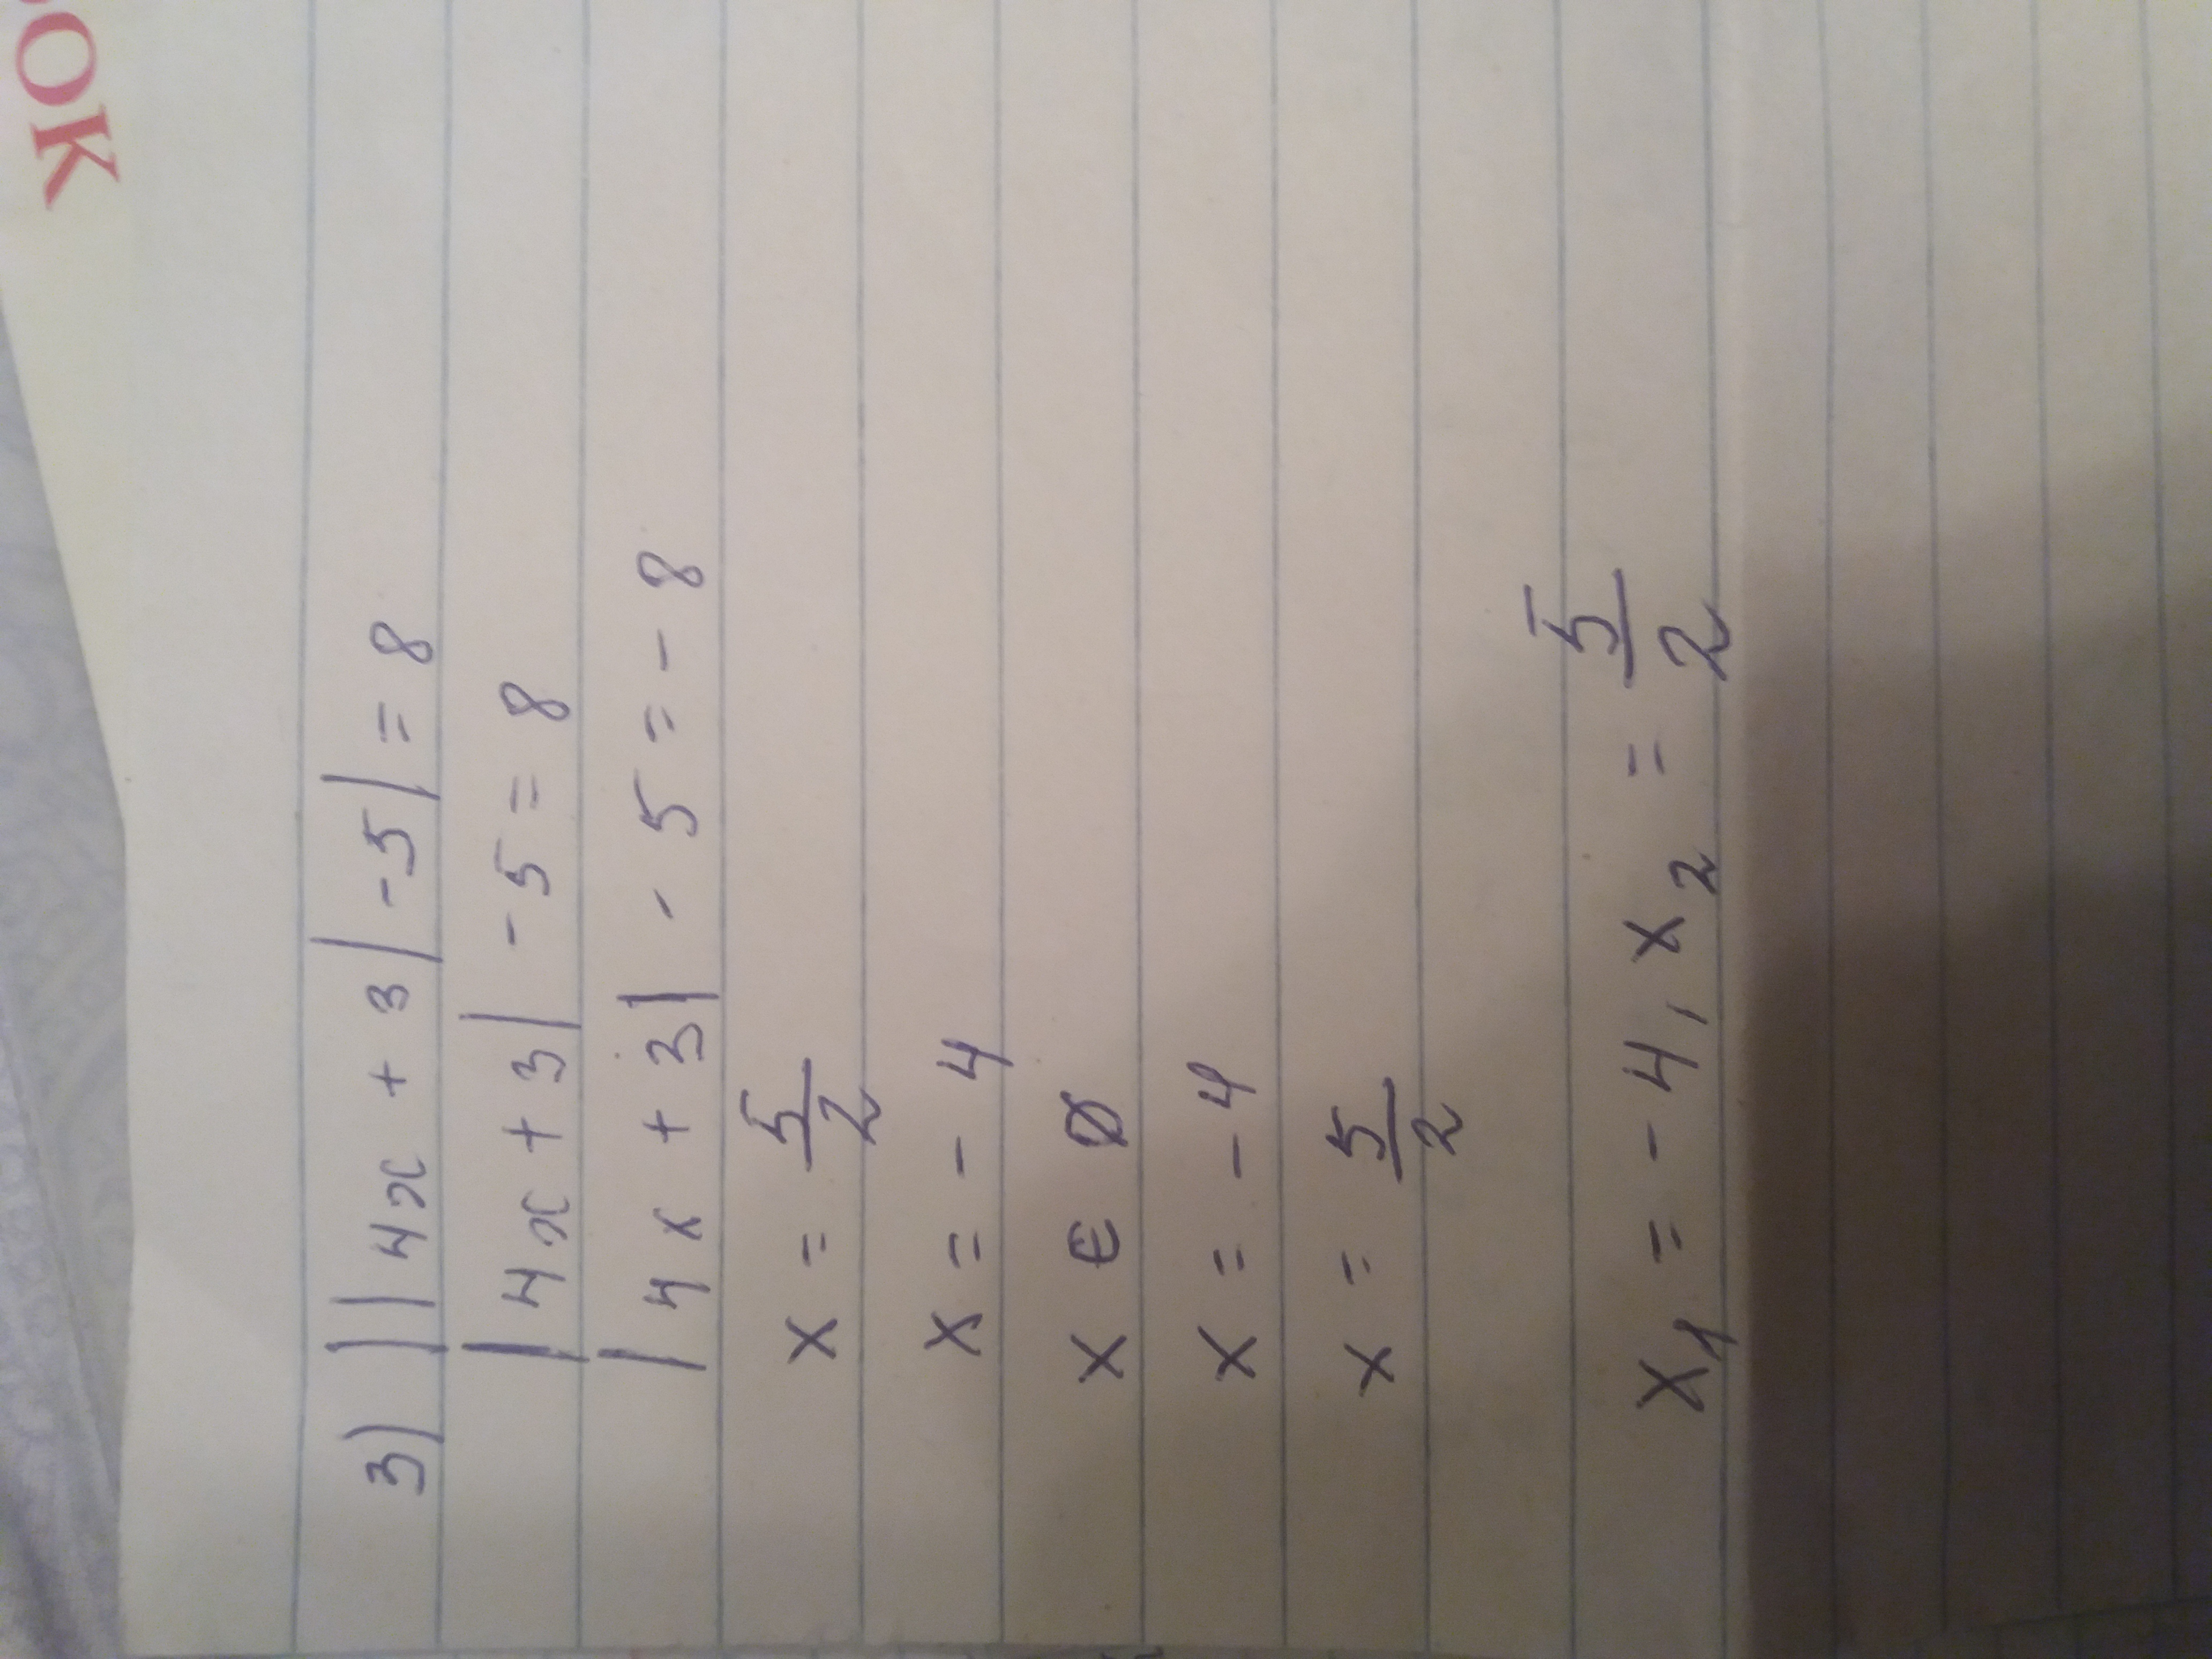 OOK
3) ||4x + 3|-5| = 8
|4x + 3| - 5 = 8
|4x + 3| - 5 = - 8
x = 5/2
x = - 4
x ∈ Ø
x = - 4
x = 5/2
x₁ = - 4, x₂ = 5/2